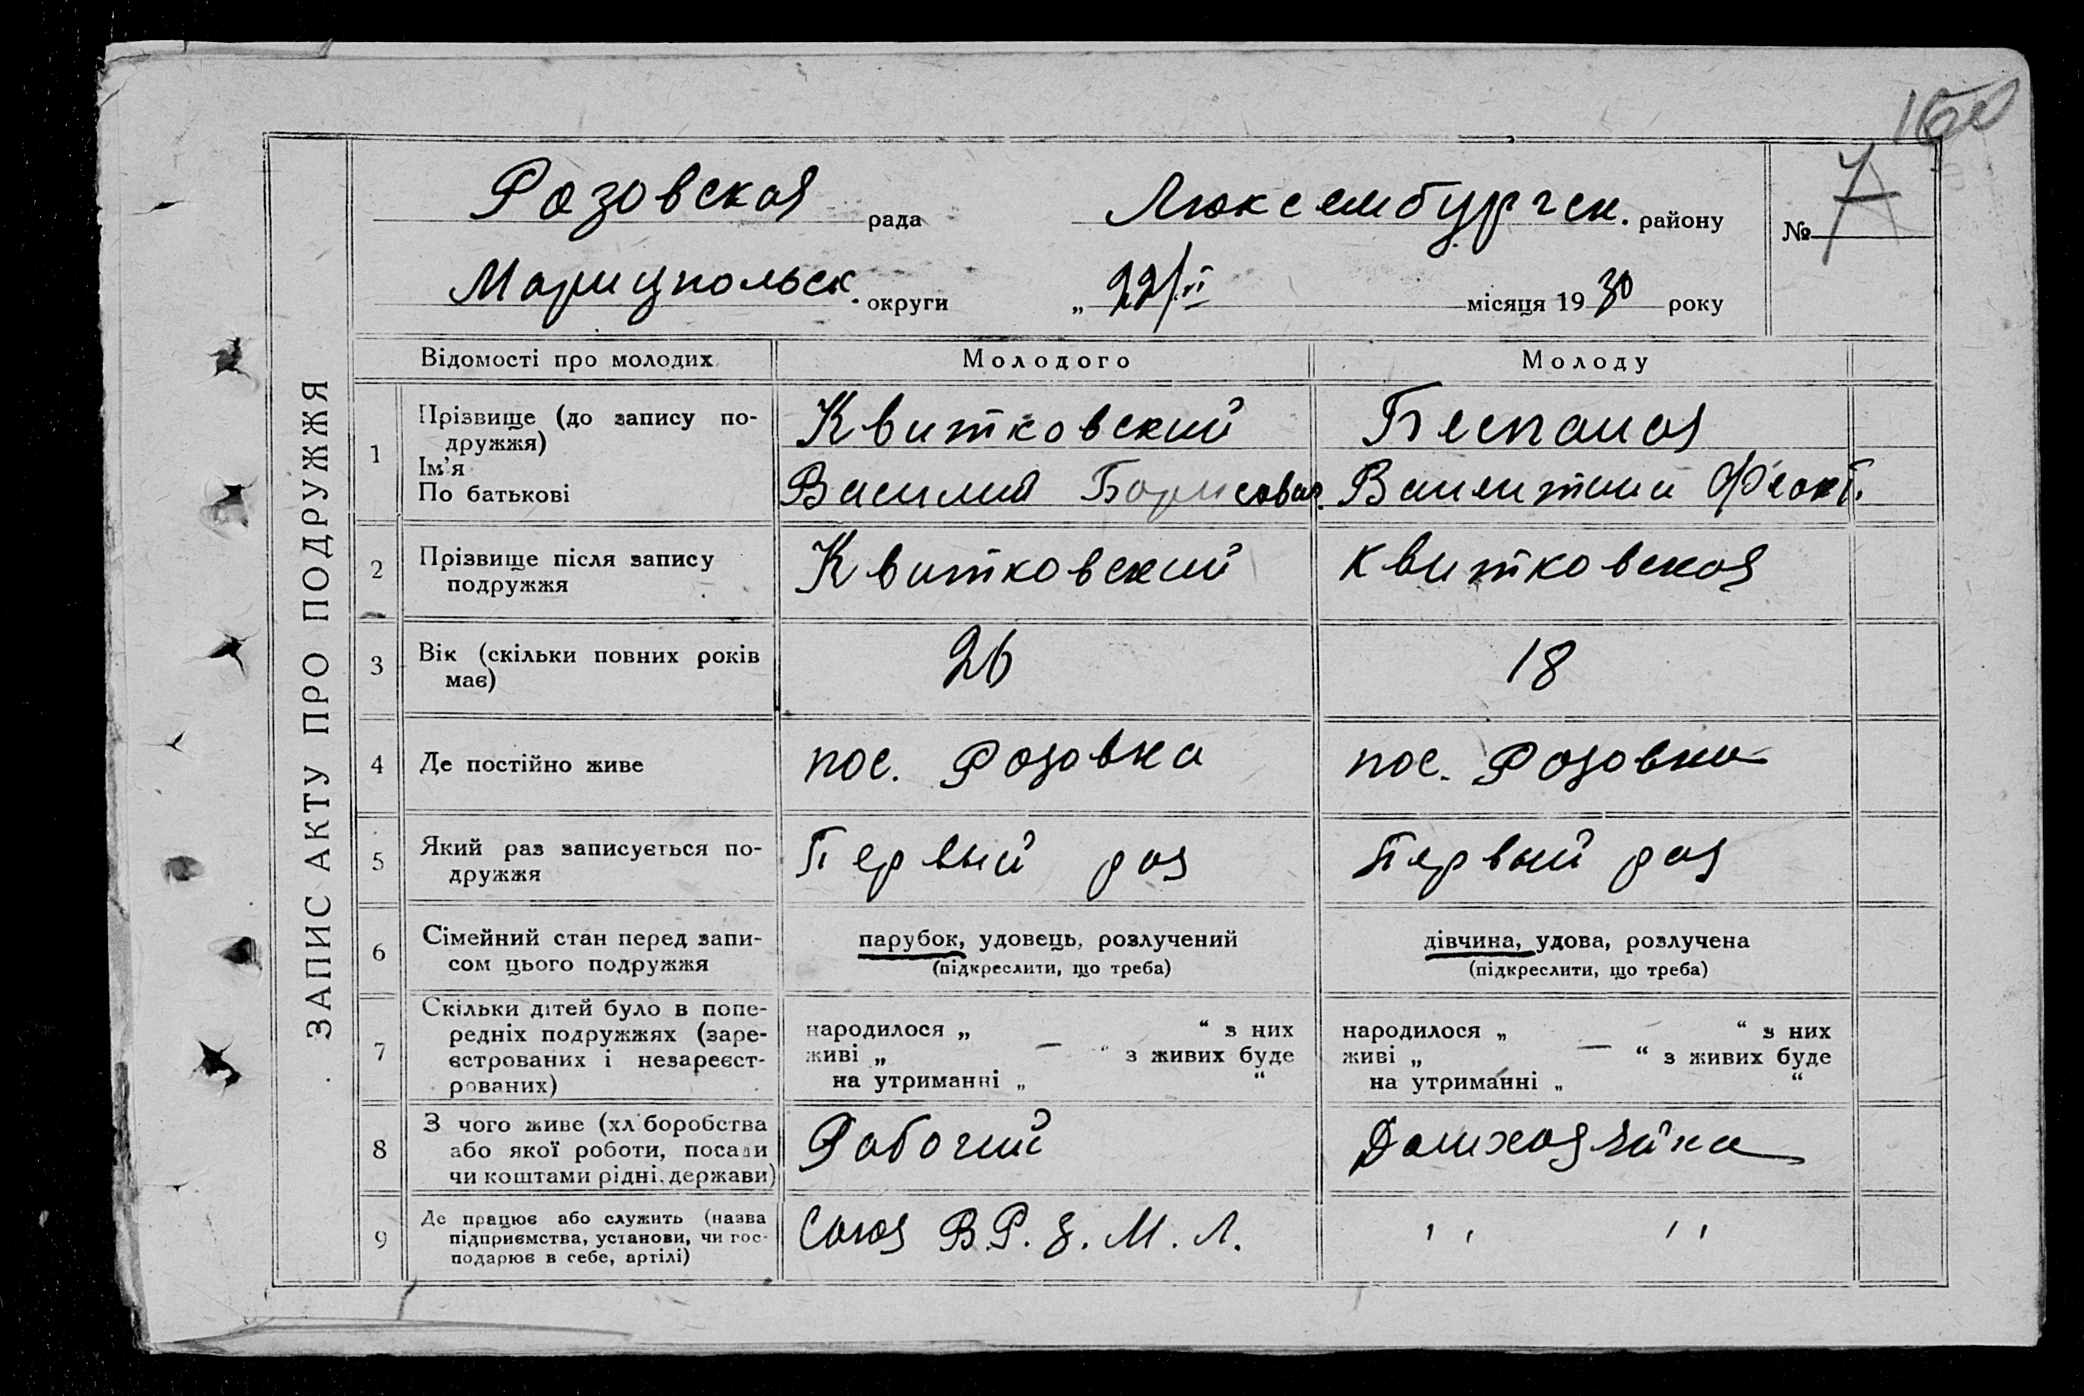 160
Розовская рада Люксембургск. району № 7
Мариупольск. округи „ 22/II місяця 1930 року
ЗАПИС АКТУ ПРО ПОДРУЖЖЯ
Відомості про молодих Молодого Молоду
1 Прізвище (до запису по- Квитковский Беспалая
дружжя)
Ім'я
По батькові Василий Борисович. Валентина Феокт.
2 Прізвище після запису Квитковский Квитковская
подружжя
3 Вік (скільки повних років 26 18
має)
4 Де постійно живе пос. Розовка пос. Розовка
5 Який раз записується по- Первый раз Первый раз
дружжя
6 Сімейний стан перед запи- парубок, удовець, розлучений дівчина, удова, розлучена
сом цього подружжя (підкреслити, що треба) (підкреслити, що треба)
7 Скільки дітей було в попе-
редніх подружжях (заре- народилося „ “ з них народилося „ “ з них
єстрованих і незареєст- живі „ — “ з живих буде живі „ — “ з живих буде
рованих) на утриманні „ “ на утриманні „ “
8 З чого живе (хліборобства Рабочий Домхозяйка
або якої роботи, посади
чи коштами рідні, держави)
9 Де працює або служить (назва Союз В.Р.З.М.Л. ,, ,,
підприємства, установи, чи гос-
подарює в себе, артілі)